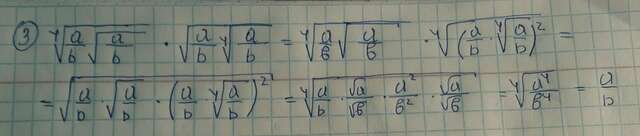 ③ ∜(a/b √(a/b)) · √(a/b ∜(a/b)) = ∜(a/b √(a/b)) · ∜((a/b · ∜(a/b))²) =
= ∜(a/b · √(a/b) · (a/b · ∜(a/b))²) = ∜(a/b · √a/√b · a²/b² · √a/√b) = ∜(a⁴/b⁴) = a/b